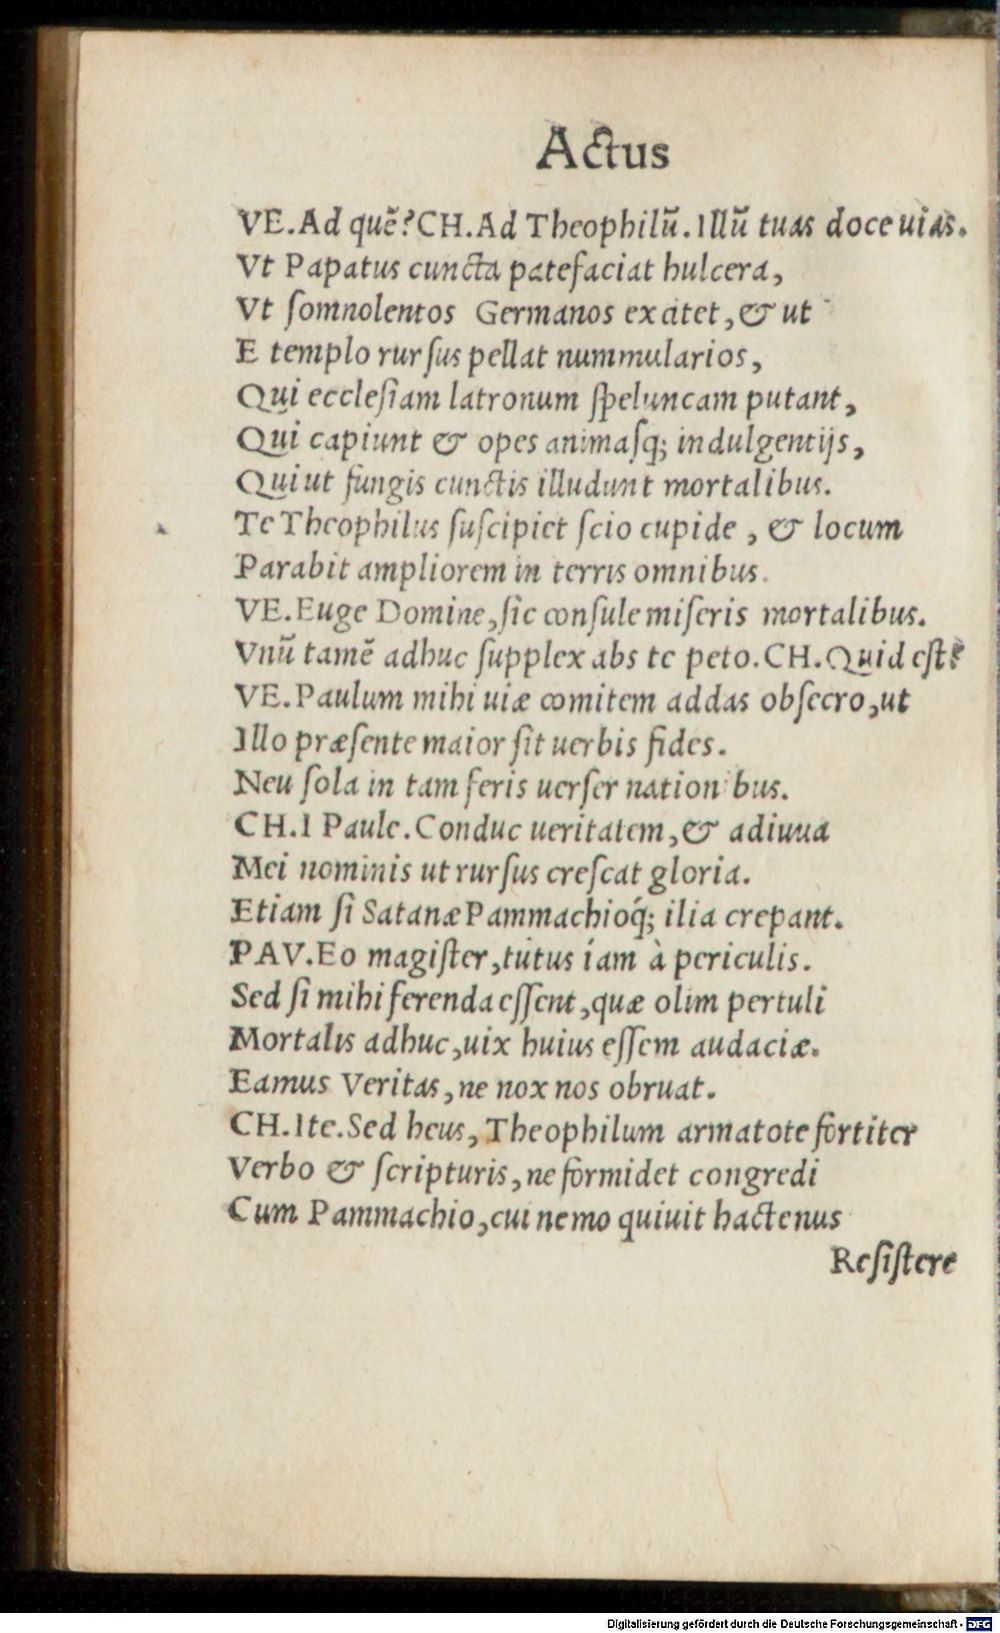 Actus
VE.Ad quē?CH.Ad Theophilū.Illū tuas doce uias.
Vt Papatus cuncta patefaciat hulcera,
Vt ſomnolentos Germanos excitet,& ut
E templo rurſus pellat nummularios,
Qui eccleſiam latronum ſpeluncam putant,
Qui capiunt & opes animaſq; indulgentijs,
Qui ut fungis cunctis illudunt mortalibus.
Te Theophilus ſuſcipiet ſcio cupide , & locum
Parabit ampliorem in terris omnibus.
VE.Euge Domine,ſic conſule miſeris mortalibus.
Vnū tamē adhuc ſupplex abs te peto.CH.Quid eſt?
VE.Paulum mihi uiæ comitem addas obſecro,ut
Illo præſente maior ſit uerbis fides.
Neu ſola in tam feris uerſer nationibus.
CH.I Paule.Conduc ueritatem,& adiuua
Mei nominis ut rurſus creſcat gloria.
Etiam ſi Satanæ Pammachioq́; ilia crepant.
PAV.Eo magiſter,tutus iam à periculis.
Sed ſi mihi ferenda eſſent,quæ olim pertuli
Mortalis adhuc,uix huius eſſem audaciæ.
Eamus Veritas,ne nox nos obruat.
CH.Ite.Sed heus,Theophilum armatote fortiter
Verbo & ſcripturis,ne formidet congredi
Cum Pammachio,cui nemo quiuit hactenus
Reſiſtere
Digitalisierung gefördert durch die Deutsche Forschungsgemeinschaft - DFG